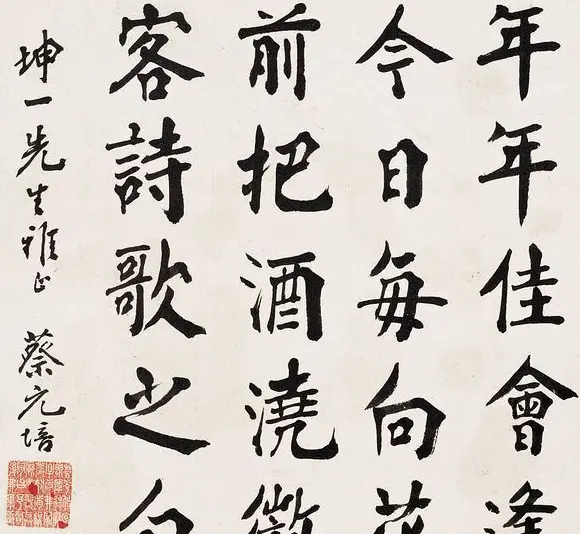 年年佳會逢
今日每向花
前把酒澆
客詩歌之
坤一先生雅正 蔡元培